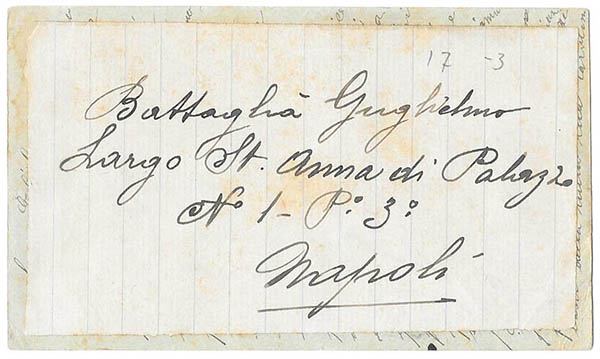 17 -3
Battaglia Guglielmo
Largo St. Anna di Palazzo
No 1 - Po. 3o
Napoli